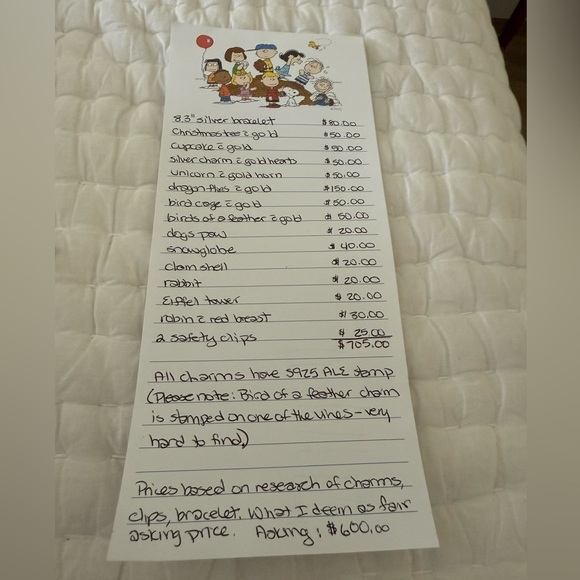 8.3" silver bracelet $80.00
Christmas tree c̄ gold $50.00
cupcake c̄ gold $50.00
silver charm c̄ gold hearts $50.00
unicorn c̄ gold horn $50.00
dragon flies c̄ gold $150.00
bird cage c̄ gold $50.00
birds of a feather c̄ gold $50.00
dogs paw $20.00
snowglobe $40.00
clam shell $20.00
rabbit $20.00
Eiffel tower $20.00
robin c̄ red breast $30.00
2 safety clips $25.00
$705.00
All charms have S925 ALE stamp
(Please note: Bird of a feather charm
is stamped on one of the vines - very
hard to find)
Prices based on research of charms,
clips, bracelet. What I deem as fair
asking price. Asking: $600.00